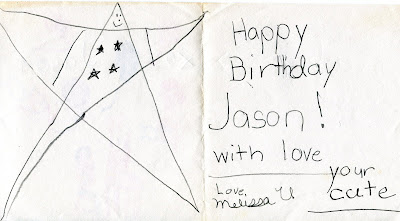 Happy
Birthday
Jason!
with love
your
cute
Love,
melissa